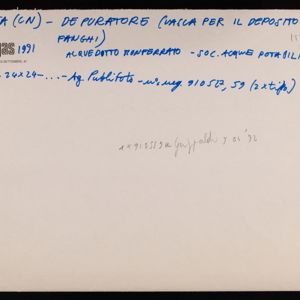 A (CN) - DEPURATORE (VASCA PER IL DEPOSITO
FANGHI)
1991
ACQUEDOTTO MONFERRATO - SOC. ACQUE POTABILI
24x24 - ... - Ag. Publifoto - n° neg. 910517, 59 (2 x tipo)